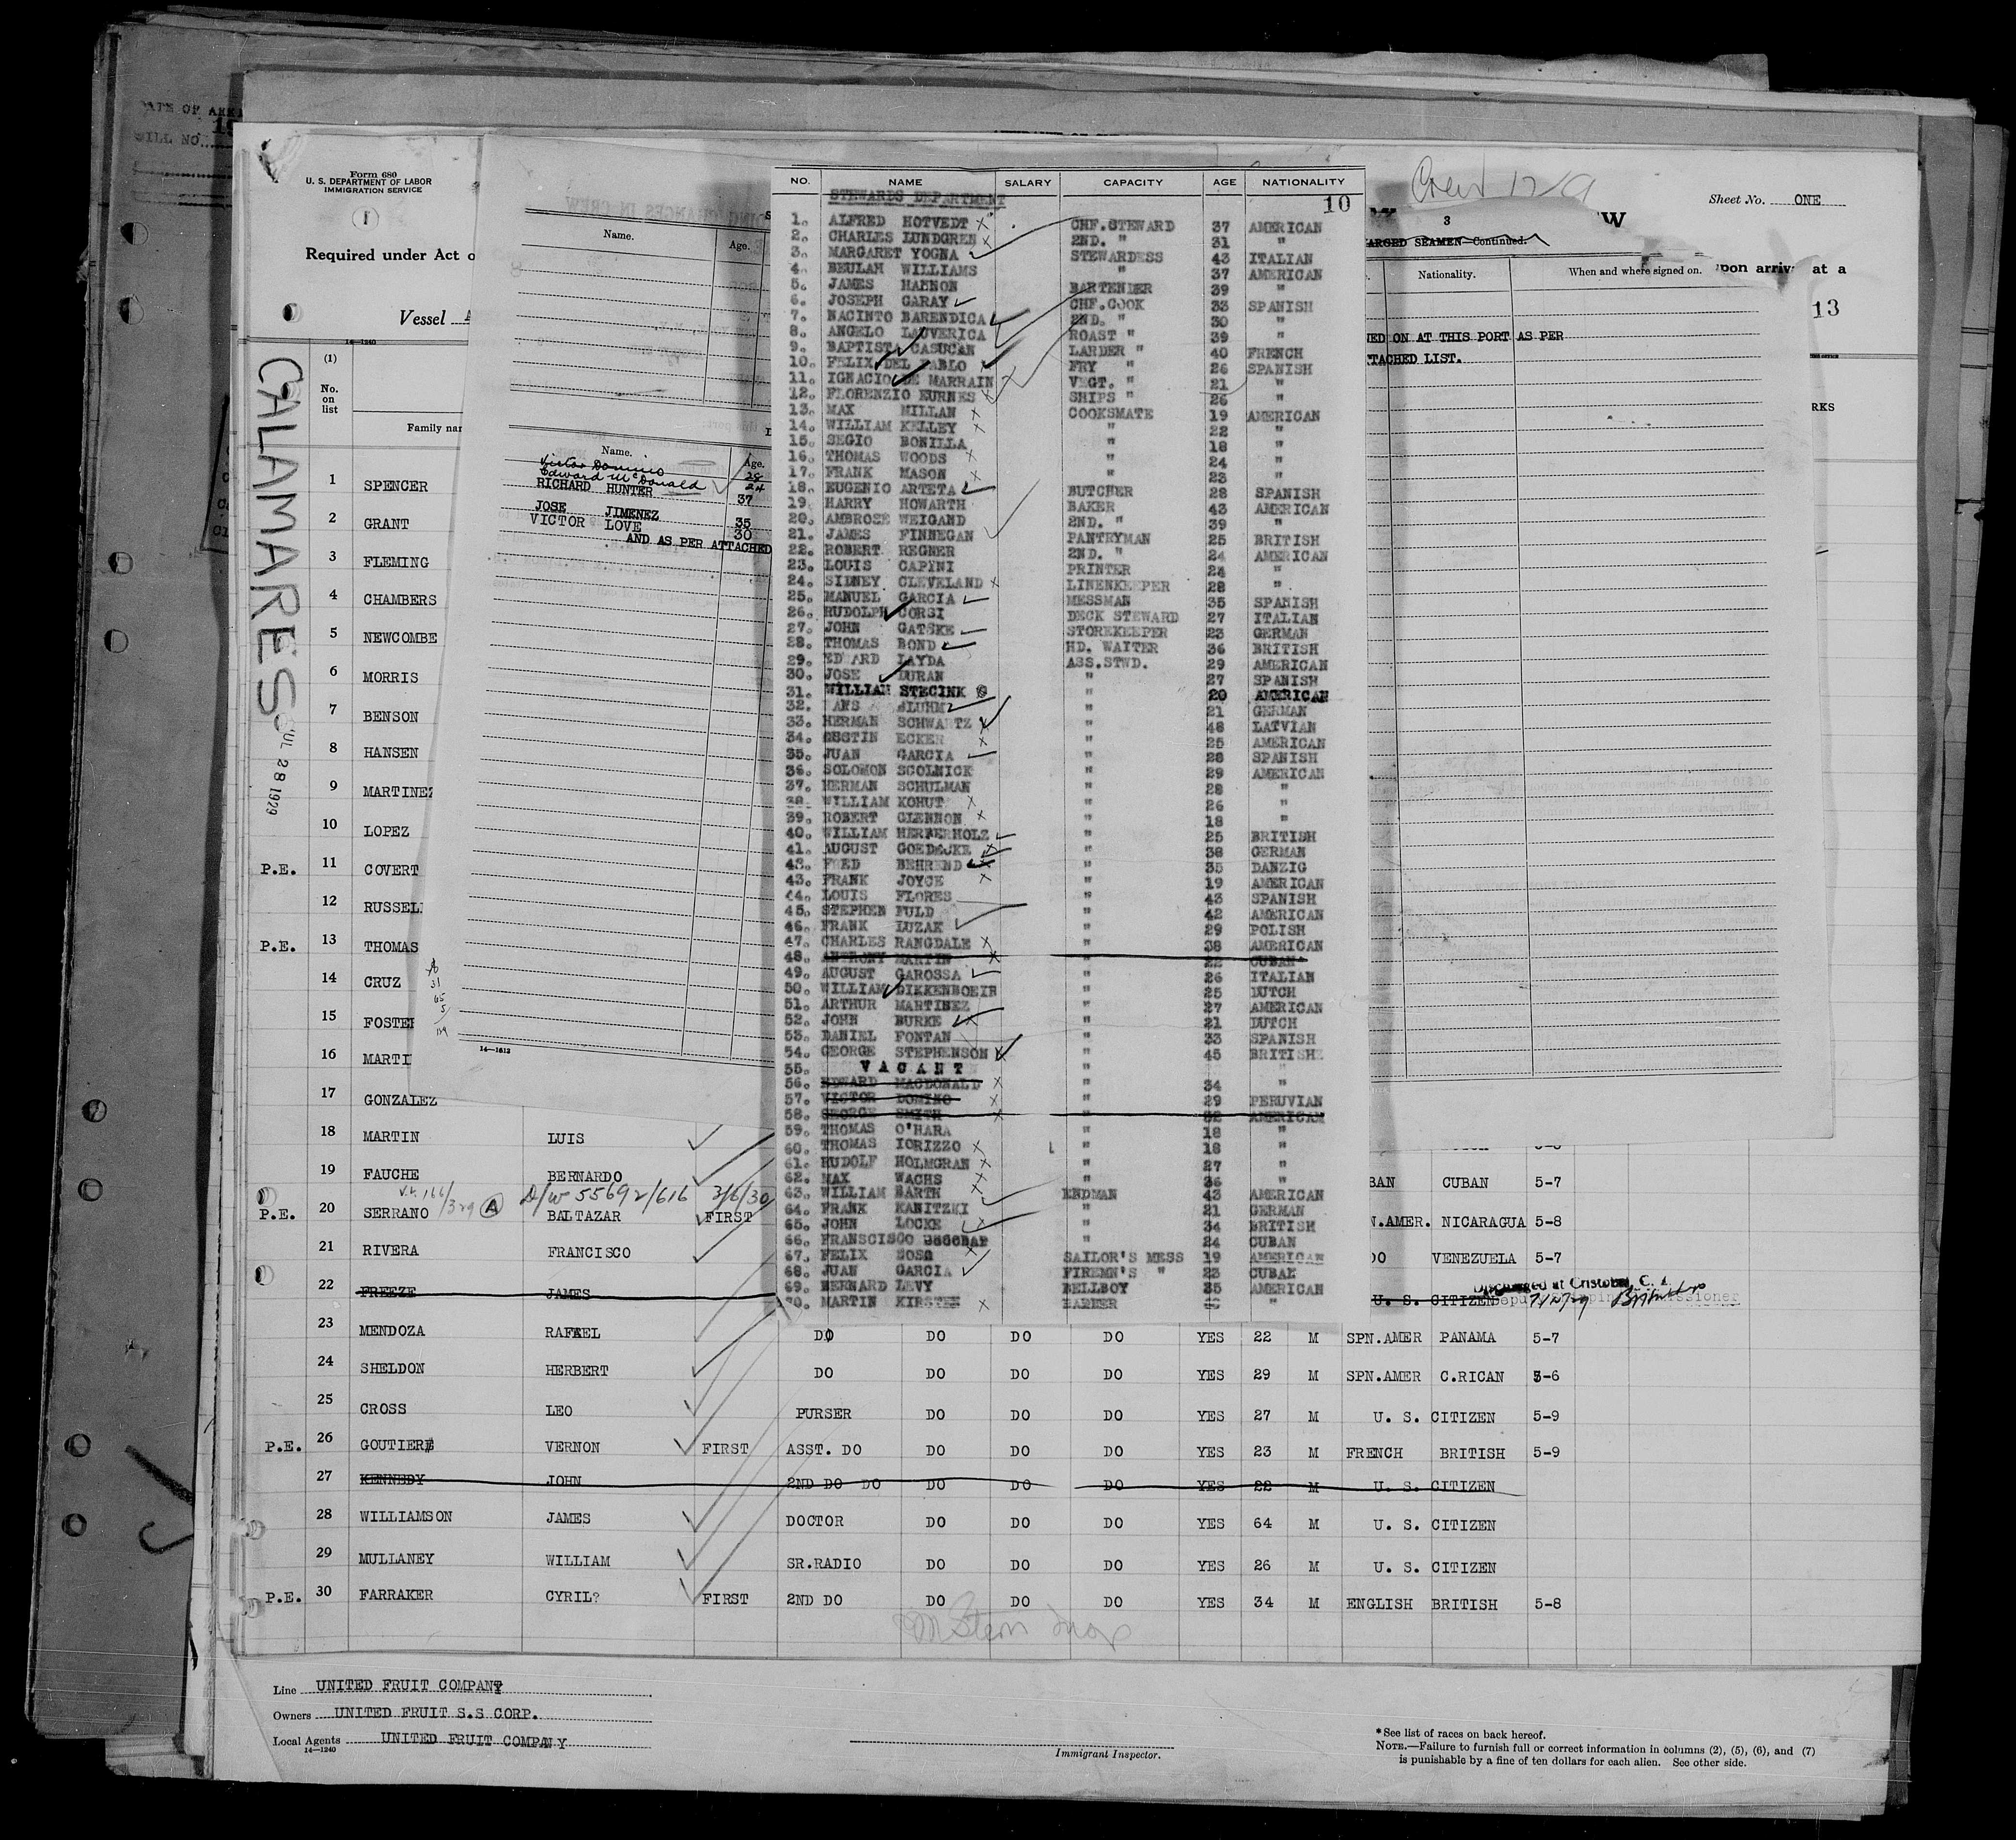 DATE OF ARR
BILL NO.
Form 680
U. S. DEPARTMENT OF LABOR
IMMIGRATION SERVICE
Required under Act o
Vessel
14—1240
CALAMARES
UL 28 1929
(1)
No.
on
list
Family nar
Sheet No. ONE
W
pon arriv at a
13
RKS
3
ARGED SEAMEN—Continued.
Nationality.
When and where signed on.
NED ON AT THIS PORT AS PER
TACHED LIST.
Name.
Age.
Name.
Age.
Victor Domino 28
Edward McDonald 24
RICHARD HUNTER 37
JOSE JIMENEZ 35
VICTOR LOVE 30
AND AS PER ATTACHED
14—1612
NO. NAME SALARY CAPACITY AGE NATIONALITY
STEWARDS DEPARTMENT
10
1. ALFRED HOTVEDT CHF.STEWARD 37 AMERICAN
2. CHARLES LUNDGREN 2ND. " 31 "
3. MARGARET YOGNA STEWARDESS 43 ITALIAN
4. BEULAH WILLIAMS " 37 AMERICAN
5. JAMES HANNON BARTENDER 39 "
6. JOSEPH GARAY CHF.COOK 33 SPANISH
7. NACINTO BARENDICA 2ND. " 30 "
8. ANGELO LAUVERICA ROAST " 39 "
9. BAPTISTA CASUCAN LARDER " 40 FRENCH
10. FELIX DEL PABLO FRY " 26 SPANISH
11. IGNACIO DE MARRAIN VEGT. " 21 "
12. FLORENZIO EURNES SHIPS " 26 "
13. MAX MILLAN COOKSMATE 19 AMERICAN
14. WILLIAM KELLEY " 22 "
15. SEGIO BONILLA " 18 "
16. THOMAS WOODS " 24 "
17. FRANK MASON " 23 "
18. EUGENIO ARTETA BUTCHER 28 SPANISH
19. HARRY HOWARTH BAKER 43 AMERICAN
20. AMBROSE WEIGAND 2ND. " 39 "
21. JAMES FINNEGAN PANTRYMAN 25 BRITISH
22. ROBERT REGNER 2ND. " 24 AMERICAN
23. LOUIS CAPINI PRINTER 24 "
24. SIDNEY CLEVELAND LINENKEEPER 28 "
25. MANUEL GARCIA MESSMAN 35 SPANISH
26. RUDOLPH CORSI DECK STEWARD 27 ITALIAN
27. JOHN GATSKE STOREKEEPER 23 GERMAN
28. THOMAS BOND HD. WAITER 36 BRITISH
29. ED ARD LAYDA ASS.STWD. 29 AMERICAN
30. JOSE DURAN " 27 SPANISH
31. WILLIAM STECINK " 20 AMERICAN
32. ANS BLUHM " 21 GERMAN
33. HERMAN SCHWARTZ " 48 LATVIAN
34. ECKER " 25 AMERICAN
35. JUAN GARCIA " 28 SPANISH
36. SOLOMON SCOLNICK " 29 AMERICAN
37. HERMAN SCHULMAN " 28 "
38. WILLIAM KOHUT " 26 "
39. ROBERT GLENNON " 18 "
40. WILLIAM HERBERHOLZ " 25 BRITISH
41. AUGUST GOEDECKE " 38 GERMAN
43. FRED BEHREND " 35 DANZIG
43. FRANK JOYCE " 19 AMERICAN
44. LOUIS FLORES " 43 SPANISH
45. STEPHEN FULD " 42 AMERICAN
46. FRANK LUZAK " 29 POLISH
47. CHARLES RANGDALE " 38 AMERICAN
48. ANTHONY MARTIN " 22 CUBAN
49. AUGUST GAROSSA " 26 ITALIAN
50. WILLIAM DIKKENBOEIR " 25 DUTCH
51. ARTHUR MARTINEZ " 27 AMERICAN
52. JOHN BURKE " 21 DUTCH
53. DANIEL FONTAN " 33 SPANISH
54. GEORGE STEPHENSON " 45 BRITISH
55. VACANT "
56. EDWARD MACDONALD " 34 "
57. VICTOR DOMINO " 29 PERUVIAN
58. GEORGE SMITH " 32 AMERICAN
59. THOMAS O'HARA " 18 "
60. THOMAS IORIZZO " 18 "
61. RUDOLF HOLMGRAN " 27 "
62. MAX WACHS " 36 "
63. WILLIAM BARTH ENDMAN 43 AMERICAN
64. FRANK KANITZKI " 21 GERMAN
65. JOHN LOCKE " 34 BRITISH
66. FRANSCISCO ESCOBAR " 24 CUBAN
67. FELIX SOSA SAILOR'S MESS 19 AMERICAN
68. JUAN GARCIA FIREMN'S " 23 CUBAN
69. BERNARD LEVY BELLBOY 35 AMERICAN
70. MARTIN KIRSTEN BARBER "
1 SPENCER
2 GRANT
3 FLEMING
4 CHAMBERS
5 NEWCOMBE
6 MORRIS
7 BENSON
8 HANSEN
9 MARTINEZ
10 LOPEZ
P.E. 11 COVERT
12 RUSSELL
P.E. 13 THOMAS
14 CRUZ
15 FOSTER
16 MARTI
17 GONZALEZ
18 MARTIN LUIS
19 FAUCHE BERNARDO BAN CUBAN 5-7
D/W 55692/616 3/6/30
P.E. 20 SERRANO BALTAZAR FIRST N.AMER. NICARAGUA 5-8
21 RIVERA FRANCISCO DO VENEZUELA 5-7
22 FREEZE JAMES U. S. CITIZEN Discharged at Cristobal, C. Z.
23 MENDOZA RAFAEL DO DO DO DO YES 22 M SPN.AMER PANAMA 5-7
24 SHELDON HERBERT DO DO DO DO YES 29 M SPN.AMER C.RICAN 5-6
25 CROSS LEO PURSER DO DO DO YES 27 M U. S. CITIZEN 5-9
P.E. 26 GOUTIER VERNON FIRST ASST. DO DO DO DO YES 23 M FRENCH BRITISH 5-9
27 KENNEDY JOHN 2ND DO DO DO DO DO YES 22 M U. S. CITIZEN
28 WILLIAMSON JAMES DOCTOR DO DO DO YES 64 M U. S. CITIZEN
29 MULLANEY WILLIAM SR.RADIO DO DO DO YES 26 M U. S. CITIZEN
P.E. 30 FARRAKER CYRIL? FIRST 2ND DO DO DO DO YES 34 M ENGLISH BRITISH 5-8
Line UNITED FRUIT COMPANY
Owners UNITED FRUIT S.S CORP.
Local Agents UNITED FRUIT COMPANY
14—1240
Immigrant Inspector.
*See list of races on back hereof.
NOTE.—Failure to furnish full or correct information in columns (2), (5), (6), and (7)
is punishable by a fine of ten dollars for each alien. See other side.